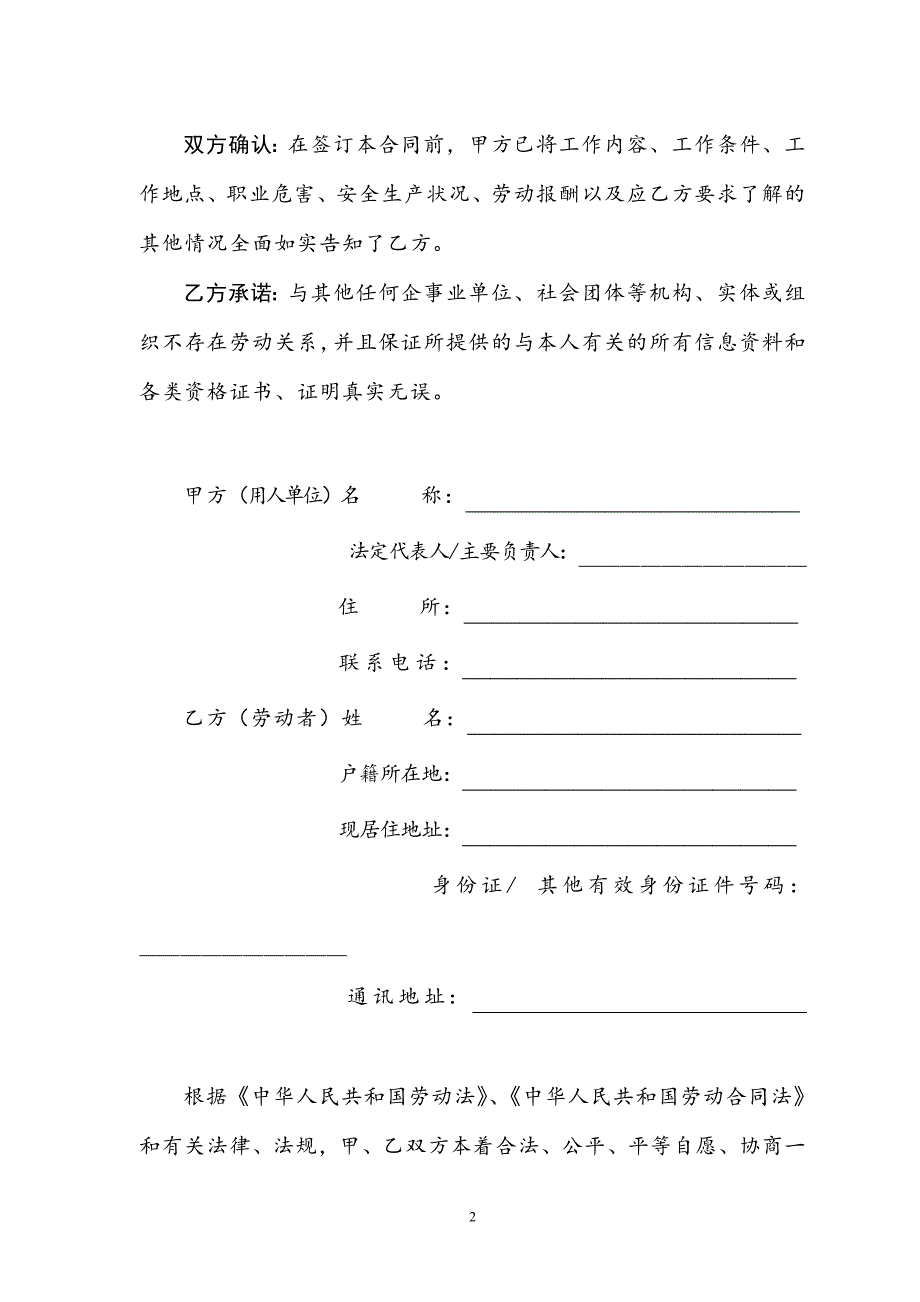 双方确认：在签订本合同前，甲方已将工作内容、工作条件、工
作地点、职业危害、安全生产状况、劳动报酬以及应乙方要求了解的
其他情况全面如实告知了乙方。
乙方承诺：与其他任何企事业单位、社会团体等机构、实体或组
织不存在劳动关系，并且保证所提供的与本人有关的所有信息资料和
各类资格证书、证明真实无误。
甲方（用人单位）名 称：
法定代表人/主要负责人：
住 所：
联系电话：
乙方（劳动者）姓 名：
户籍所在地：
现居住地址：
身份证/ 其他有效身份证件号码：
通讯地址：
根据《中华人民共和国劳动法》、《中华人民共和国劳动合同法》
和有关法律、法规，甲、乙双方本着合法、公平、平等自愿、协商一
2